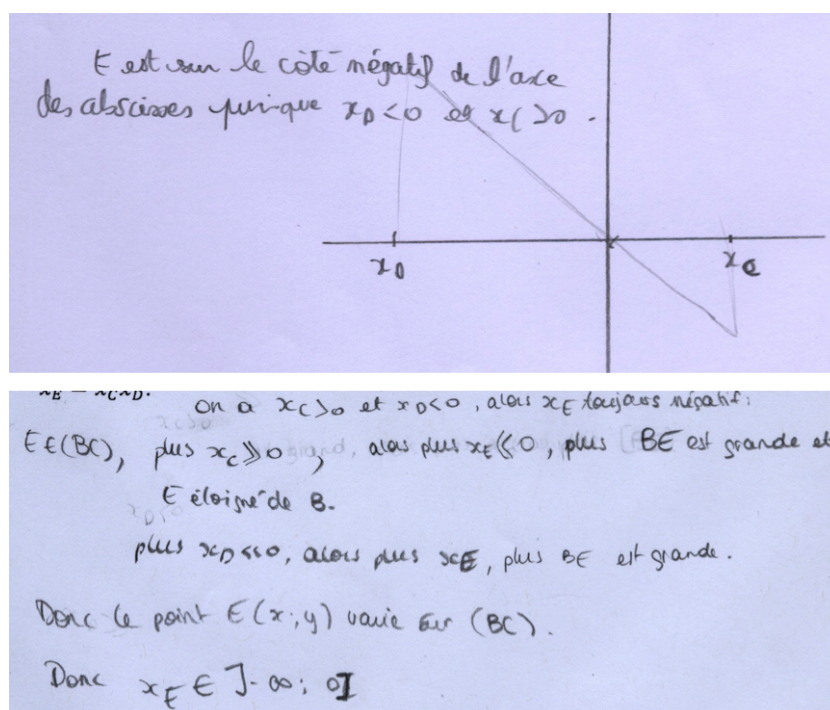 E est sur le côté négatif de l'axe
des abscisses puisque x_D<0 et x_C>0.
x_D
x_C
x_E = x_C x_D.
On a x_C>0 et x_D<0, alors x_E toujours négatif:
E∈(BC), plus x_C≫0, alors plus x_E≪0, plus BE est grande et
E éloigné de B.
plus x_D<<0, alors plus x_E, plus BE est grande.
Donc le point E(x;y) varie sur (BC).
Donc x_E ∈ ]-∞; 0[